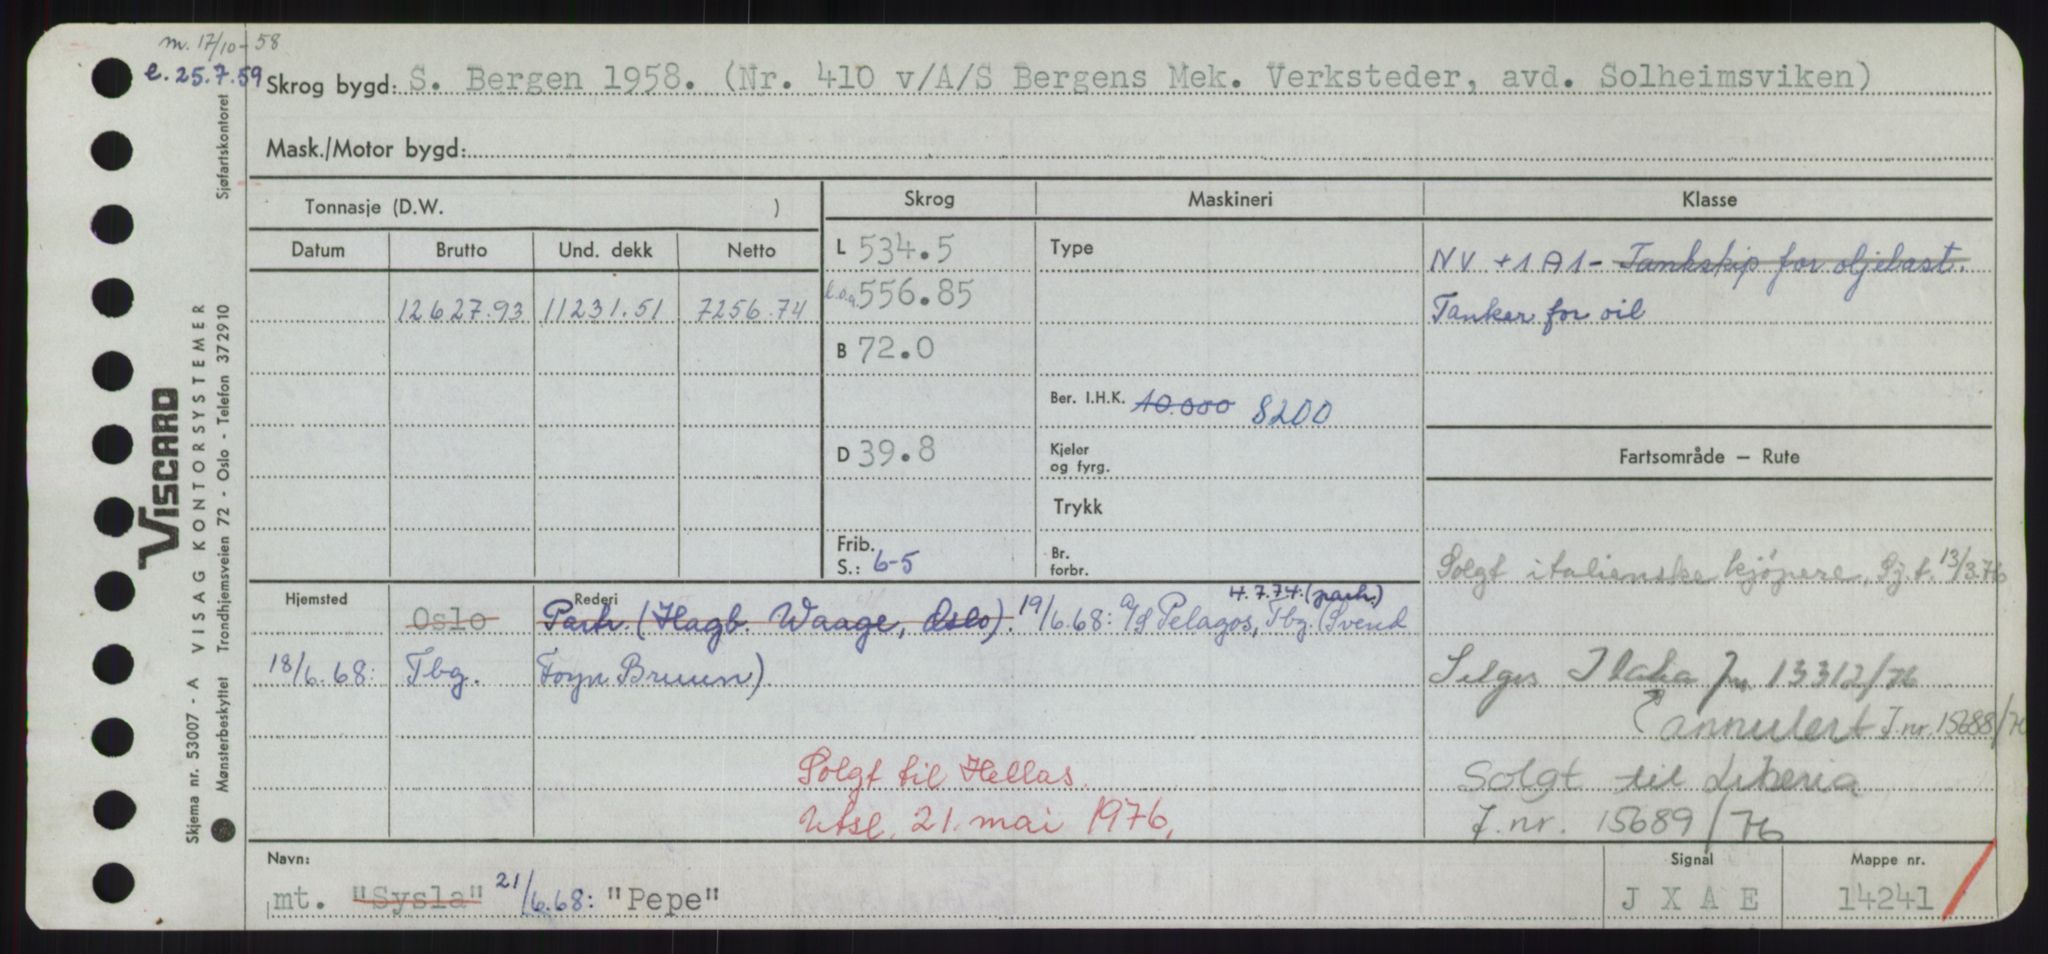 m. 17/10-58
e. 25.7.59
Skrog bygd: S. Bergen 1958. (Nr. 410 v/A/S Bergens Mek. Verksteder, avd. Solheimsviken)
Mask./Motor bygd:
Tonnasje (D.W. )
Skrog
Maskineri
Klasse
Datum Brutto Und. dekk Netto
12627.93 11231.51 7256.74
L 534.5
l.o.a. 556.85
B 72.0
D 39.8
Frib.
S.: 6-5
Type
Ber. I.H.K. 10.000 8200
Kjeler
og fyrg.
Trykk
Br.
forbr.
NV +1A1 - Tankskip for oljelast.
Tanker for oil
Fartsområde — Rute
Solgt italienske kjøpere, Sj.t. 13/3.76
Selges Jnr 13312/76
annulert J.nr. 15688/76
Solgt til Liberia
J.nr. 15689/76
Hjemsted
Rederi
4.7.74: (parh.)
Oslo Parh. (Hagb. Waage, Oslo). 19/6.68: A/S Pelagos, Tbg. (Svend
18/6.68: Tbg. Foyn Bruun)
Solgt til Hellas.
Utsl. 21. mai 1976.
Navn:
mt. "Sysla" 21/6.68: "Pepe"
Signal
J X A E
Mappe nr.
14241
Sjøfartskontoret
VISCARD
VISAG KONTORSYSTEMER
Skjema nr. 53007 - A
Mønsterbeskyttet Trondhjemsveien 72 - Oslo - Telefon 372910